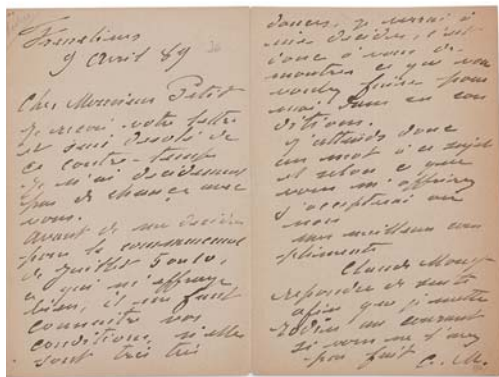 Fresselines
9 avril 89
Cher Monsieur Petit
je reçois votre lettre
et suis désolé de
ce contre-temps
je n'ai décidément
pas de chance avec
vous.
avant de me décider
pour le commencement
de Juillet
ce qui m'effraye
bien, il me faut
connaître vos
conditions, si elles
sont très très
douces, je verrai à
me décider, c'est
donc à vous de
montrer ce que vous
voulez faire pour
moi dans ces con
ditions.
j'attends donc
un mot à ce sujet
et selon ce que
vous m'offrirez
j'accepterai ou
non
mes meilleurs com
pliments
Claude Monet
répondez de suite
afin que je mette
Rodin au courant
si vous ne l'avez
pas fait C. M.